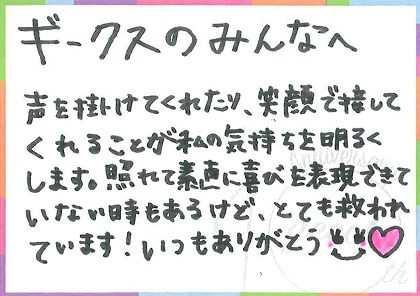 ギークスのみんなへ
声を掛けてくれたり、笑顔で接して
くれることが私の気持ちを明るく
します。照れて素直に喜びを表現できて
いない時もあるけど、とても救われ
ています!いつもありがとう
Anniversary
th